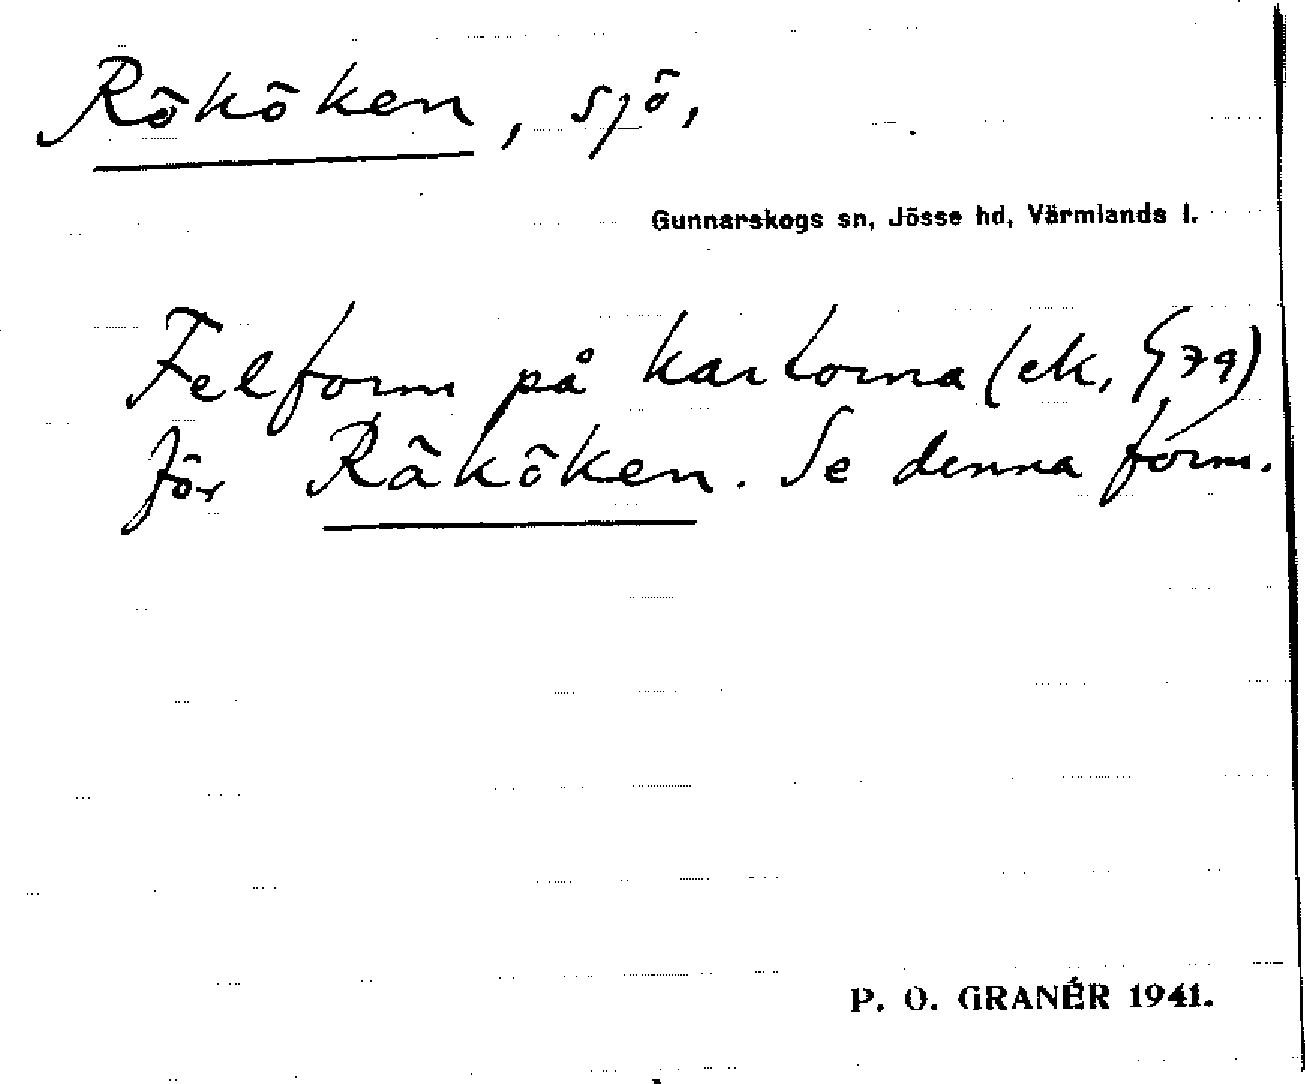 Rököken, sjö,
Gunnarskogs sn, Jösse hd, Värmlands l.
Felform på kartorna (ek, § 79)
för Räköken. Se denna form.
P. O. GRANÉR 1941.